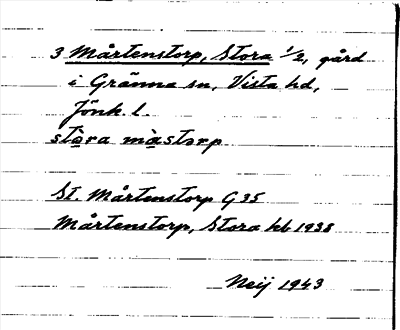 3 Mårtenstorp, Stora 1/2, gård
i Gränna sn, Vista hd,
Jönk. l.
stòra màstorp
St. Mårtenstorp G 35
Mårtenstorp, Stora kb 1938
Neij 1943